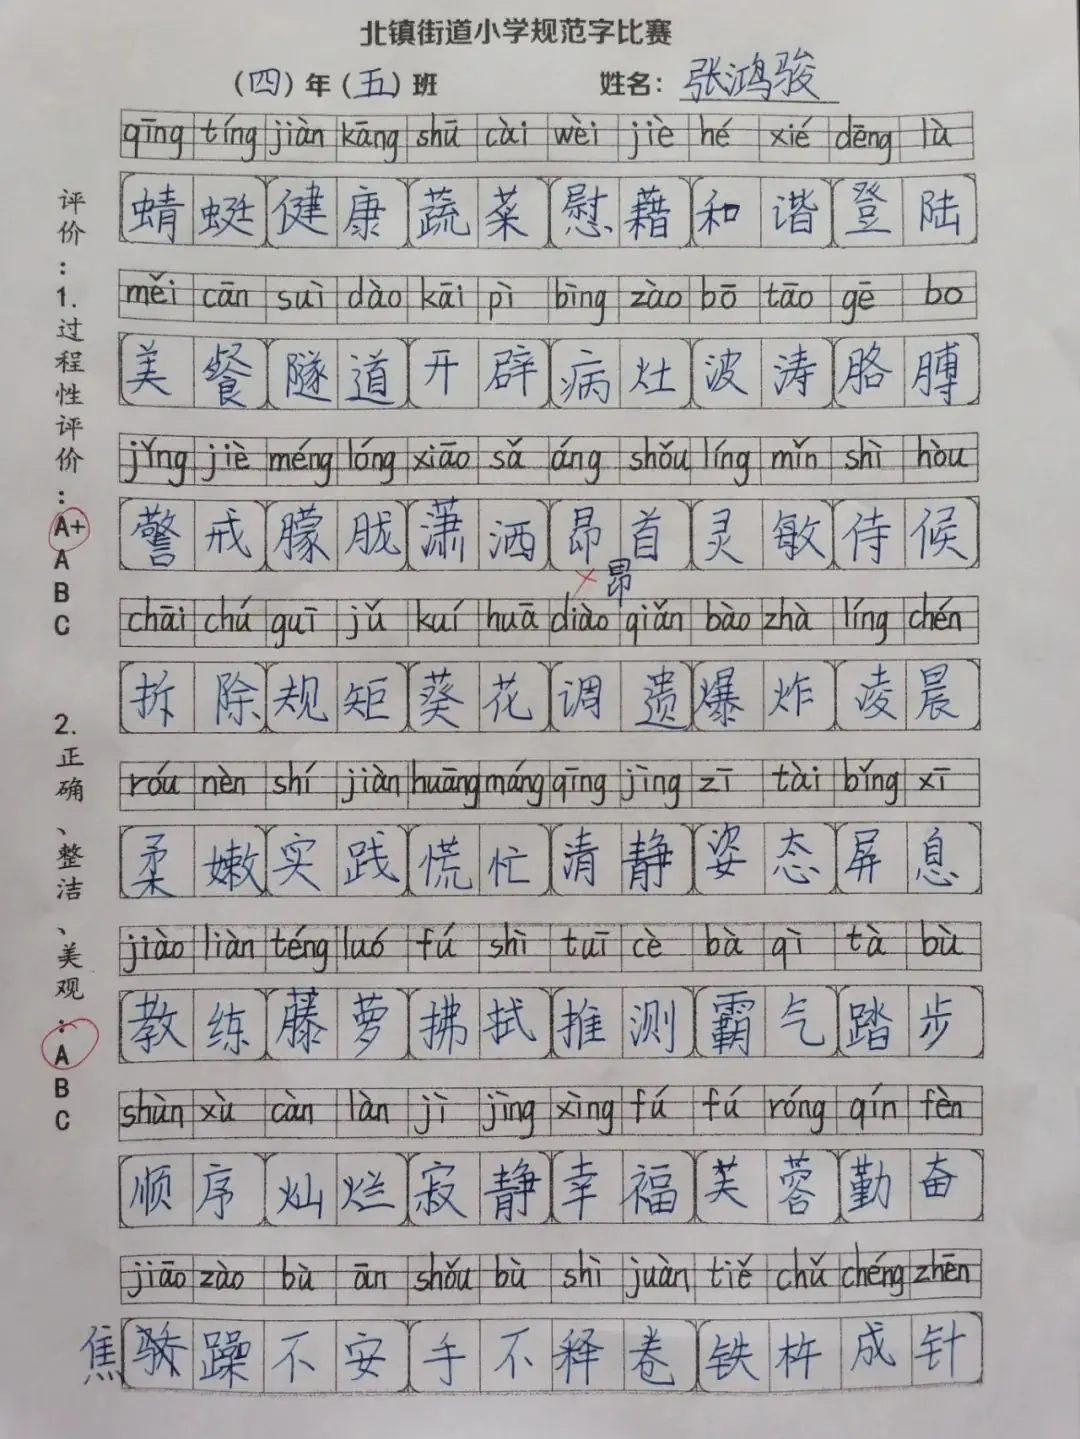 北镇街道小学规范字比赛
(四)年(五)班 姓名：张鸿骏
qīng tíng jiàn kāng shū cài wèi jiè hé xié dēng lù
蜻蜓健康蔬菜慰藉和谐登陆
měi cān suì dào kāi pì bìng zào bō tāo gē bo
美餐隧道开辟病灶波涛胳膊
jǐng jiè méng lóng xiāo sǎ áng shǒu líng mǐn shì hòu
警戒朦胧潇洒昂首灵敏侍候
× 昂
chāi chú guī jǔ kuí huā diào qiǎn bào zhà líng chén
拆除规矩葵花调遗爆炸凌晨
róu nèn shí jiàn huāng máng qīng jìng zī tài bǐng xī
柔嫩实践慌忙清静姿态屏息
jiào liàn téng luó fú shì tuī cè bà qì tà bù
教练藤萝拂拭推测霸气踏步
shùn xù càn làn jì jìng xìng fú fú róng qín fèn
顺序灿烂寂静幸福芙蓉勤奋
jiāo zào bù ān shǒu bù shì juàn tiě chǔ chéng zhēn
焦 骄躁不安手不释卷铁杵成针
评价：1.过程性评价：A+ A B C
2.正确、整洁、美观：A B C